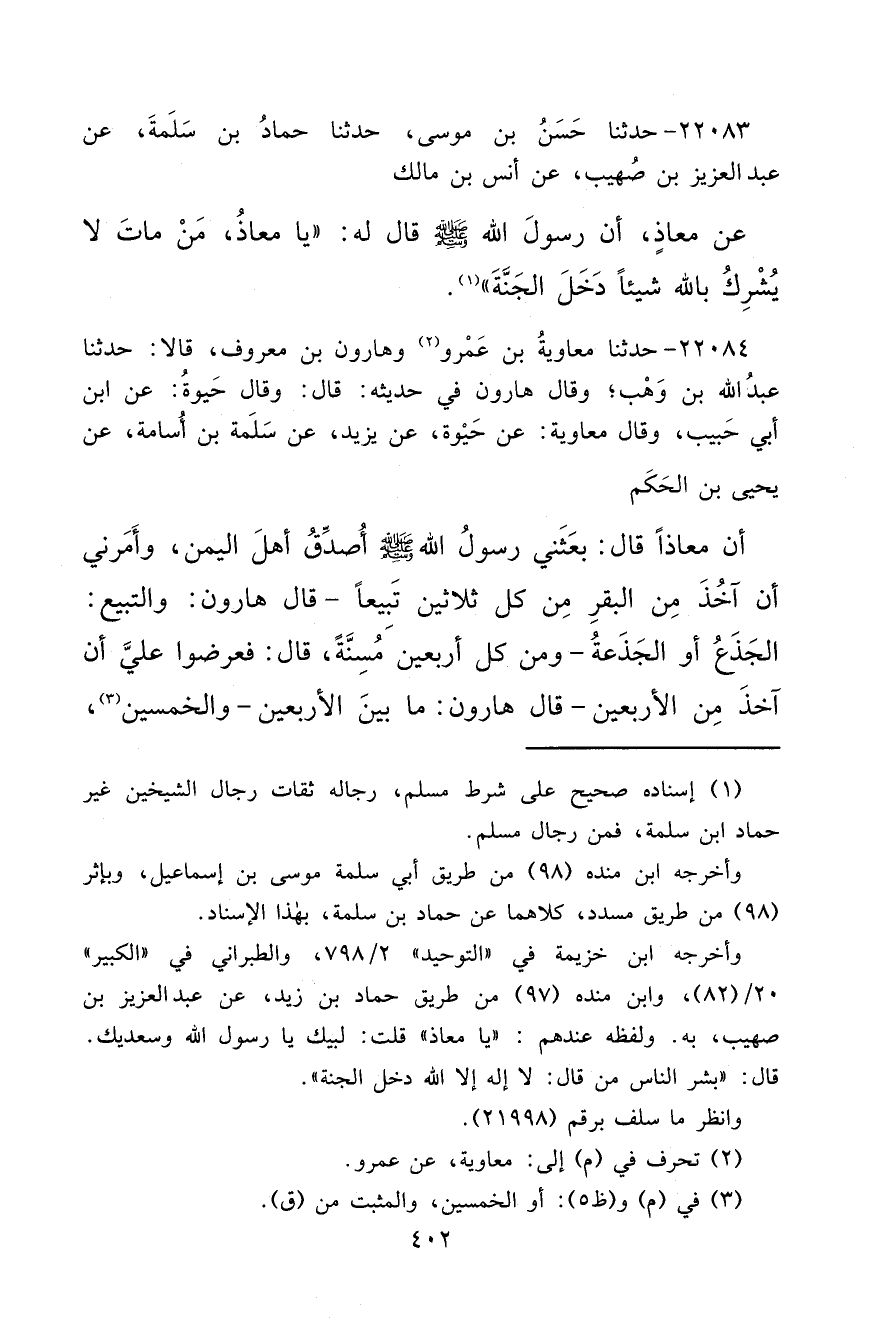 ٢٢٠٨٣- حدثنا حَسَنُ بن موسى، حدثنا حمادُ بن سَلَمةَ، عن
عبد العزيز بن صُهيب، عن أنس بن مالك
عن معاذٍ، أن رسولَ الله ﷺ قال له: «يا معاذُ، مَنْ ماتَ لا
يُشْرِكُ بالله شيئاً دَخَلَ الجَنَّةَ»(١).
٢٢٠٨٤- حدثنا معاويةُ بن عَمْرو(٢) وهارون بن معروف، قالا: حدثنا
عبدُ الله بن وَهْب؛ وقال هارون في حديثه: قال: وقال حَيوةُ: عن ابن
أبي حَبيب، وقال معاوية: عن حَيْوة، عن يزيد، عن سَلَمة بن أُسامة، عن
يحيى بن الحَكَم
أن معاذاً قال: بعَثَني رسولُ الله ﷺ أُصدِّقُ أهلَ اليمن، وأَمَرني
أن آخُذَ مِن البقرِ مِن كل ثلاثين تَبِيعاً - قال هارون: والتبيع:
الجَذَعُ أو الجَذَعةُ - ومن كل أربعين مُسِنَّةً، قال: فعرضوا عليَّ أن
آخذَ مِن الأربعين - قال هارون: ما بينَ الأربعين - والخمسين(٣)،
(١) إسناده صحيح على شرط مسلم، رجاله ثقات رجال الشيخين غير
حماد ابن سلمة، فمن رجال مسلم.
وأخرجه ابن منده (٩٨) من طريق أبي سلمة موسى بن إسماعيل، وبإثر
(٩٨) من طريق مسدد، كلاهما عن حماد بن سلمة، بهٰذا الإسناد.
وأخرجه ابن خزيمة في «التوحيد» ٧٩٨/٢، والطبراني في «الكبير»
٢٠/(٨٢)، وابن منده (٩٧) من طريق حماد بن زيد، عن عبد العزيز بن
صهيب، به. ولفظه عندهم : «يا معاذ» قلت: لبيك يا رسول الله وسعديك.
قال: «بشر الناس من قال: لا إله إلا الله دخل الجنة».
وانظر ما سلف برقم (٢١٩٩٨).
(٢) تحرف في (م) إلى: معاوية، عن عمرو.
(٣) في (م) و(ظ٥): أو الخمسين، والمثبت من (ق).
٤٠٢